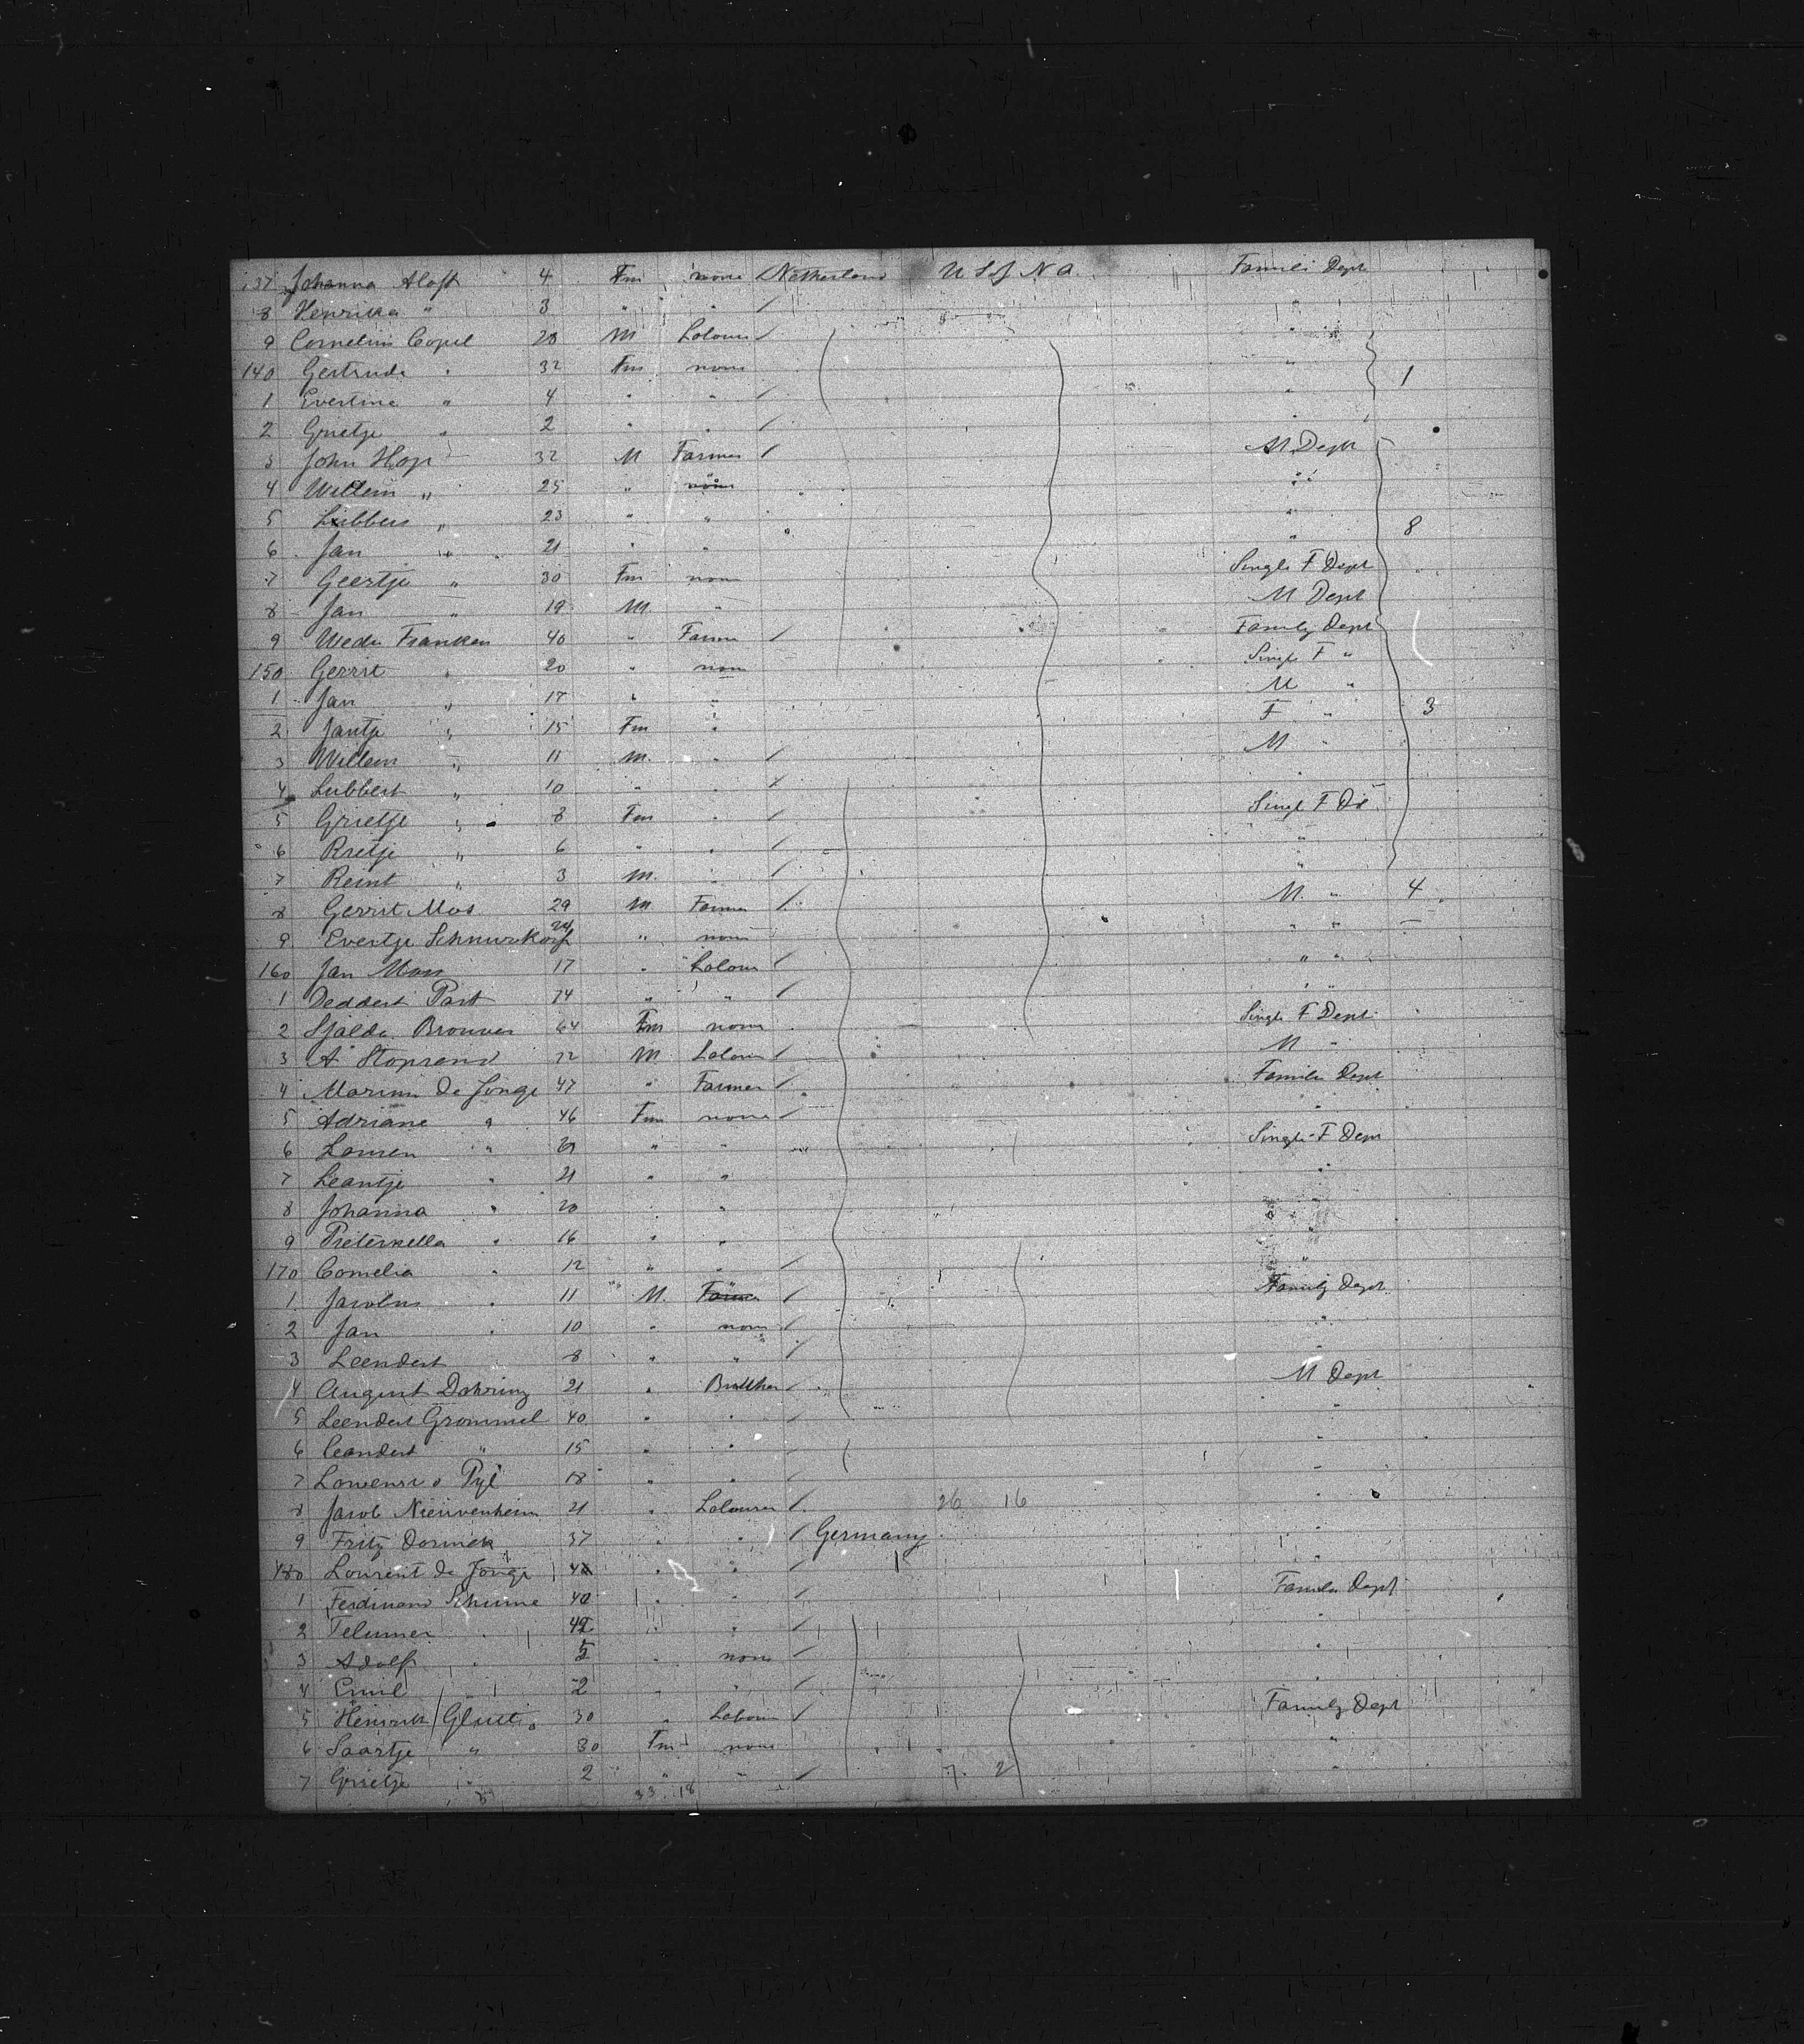 137 Johanna Aloft 4 Fm none Netherland U S of N A. Famili Dept
8 Henrika " 3 " " / "
9 Cornelius Copel 28 M Labour / "
140 Gertrude " 32 Fm none " 1
1 Evertine " 4 " " / "
2 Grietje " 2 " " / "
3 John Hop 32 M Farmer / M Dept
4 Willem " 25 " none "
5 Lubbers " 23 " " " 8
6 Jan " 21 " " "
7 Geertje " 30 Fm none Single F Dept
8 Jan " 19 M " M Dept
9 Franken 40 " Farmer / Family Dept
150 Gerrit " 20 " none Single F "
1 Jan " 17 " " M "
2 Jantje " 15 Fm " F " 3
3 Willem " 11 M. " / M "
4 Lubbert " 10 " " / "
5 Grietje " 8 Fm " / Singl F De
6 " 6 " " / "
7 Reint " 3 M. " / "
8 Gerrit Mos 29 M Farmer / M. " 4
9 Evertje 24 " none " "
160 Jan Moss 17 " Labour / " "
1 Deddert Part 74 " " / " "
2 Brouwer 64 Fm none Single F Dept
3 A Stoprand 72 M Labour / M "
4 De Jonge 47 " Farmer / Famili Dept
5 Adriane " 46 Fm none / "
6 " " " Single F Dem
7 Leantje " 21 " " "
8 Johanna " 20 " " "
9 Pieternella " 16 " " "
170 Cornelia " 12 " " / "
1 Jacobus " 11 M. Farmer / Family Dept
2 Jan " 10 " none / "
3 Leendert 8 " " / "
4 August Dohring 21 " Butcher / M Dept
5 Leendert Grommel 40 " " / "
6 Leendert " 15 " " "
7 Pyl 18 " " / "
8 Jacob Nieuwenheim 21 " Labourer / 26 16 "
9 Fritz Dornick 37 " " / Germany "
180 Lourent de Jonge " " / "
1 Ferdinand Schirme 40 " " / Famile Dept
2 " 42 " " / "
3 Adolf " 5 " none / "
4 Emil " 2 " " / "
5 Henrich 30 " Labour / Family Dept
6 Saartje " 30 Fm none "
7 Grietje " 2 " " / 7. 2 "
33 18